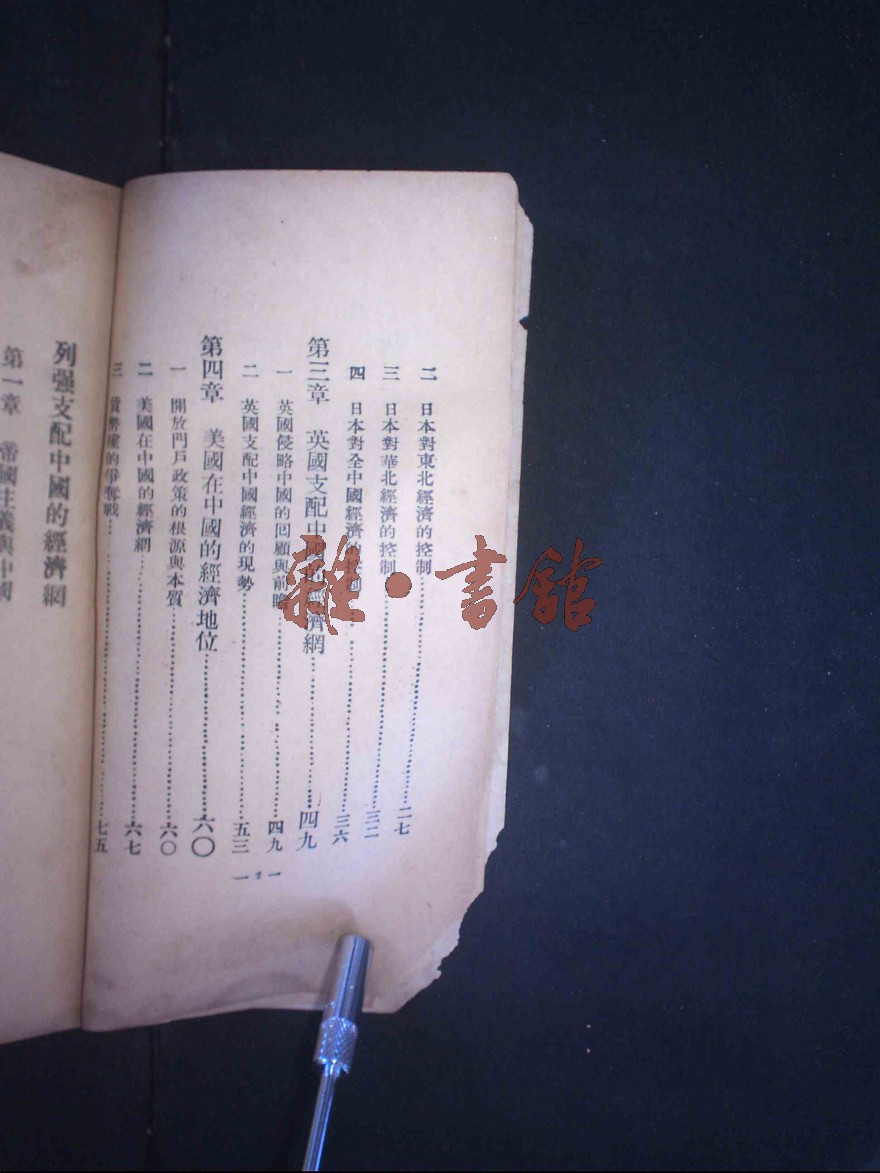 二　日本對東北經濟的控制……二七
三　日本對華北經濟的控制……三二
四　日本對全中國經濟的控制……三六
第三章　英國支配中國的經濟網……四九
一　英國侵略中國的回顧與前瞻……四九
二　英國支配中國經濟的現勢……五三
第四章　美國在中國的經濟地位……六〇
一　開放門戶政策的根源與本質……六〇
二　美國在中國的經濟網……六七
三　貨幣權的爭奪戰……七五
— 2 —
列强支配中國的經濟網
第一章　帝國主義與中國
雜·書館